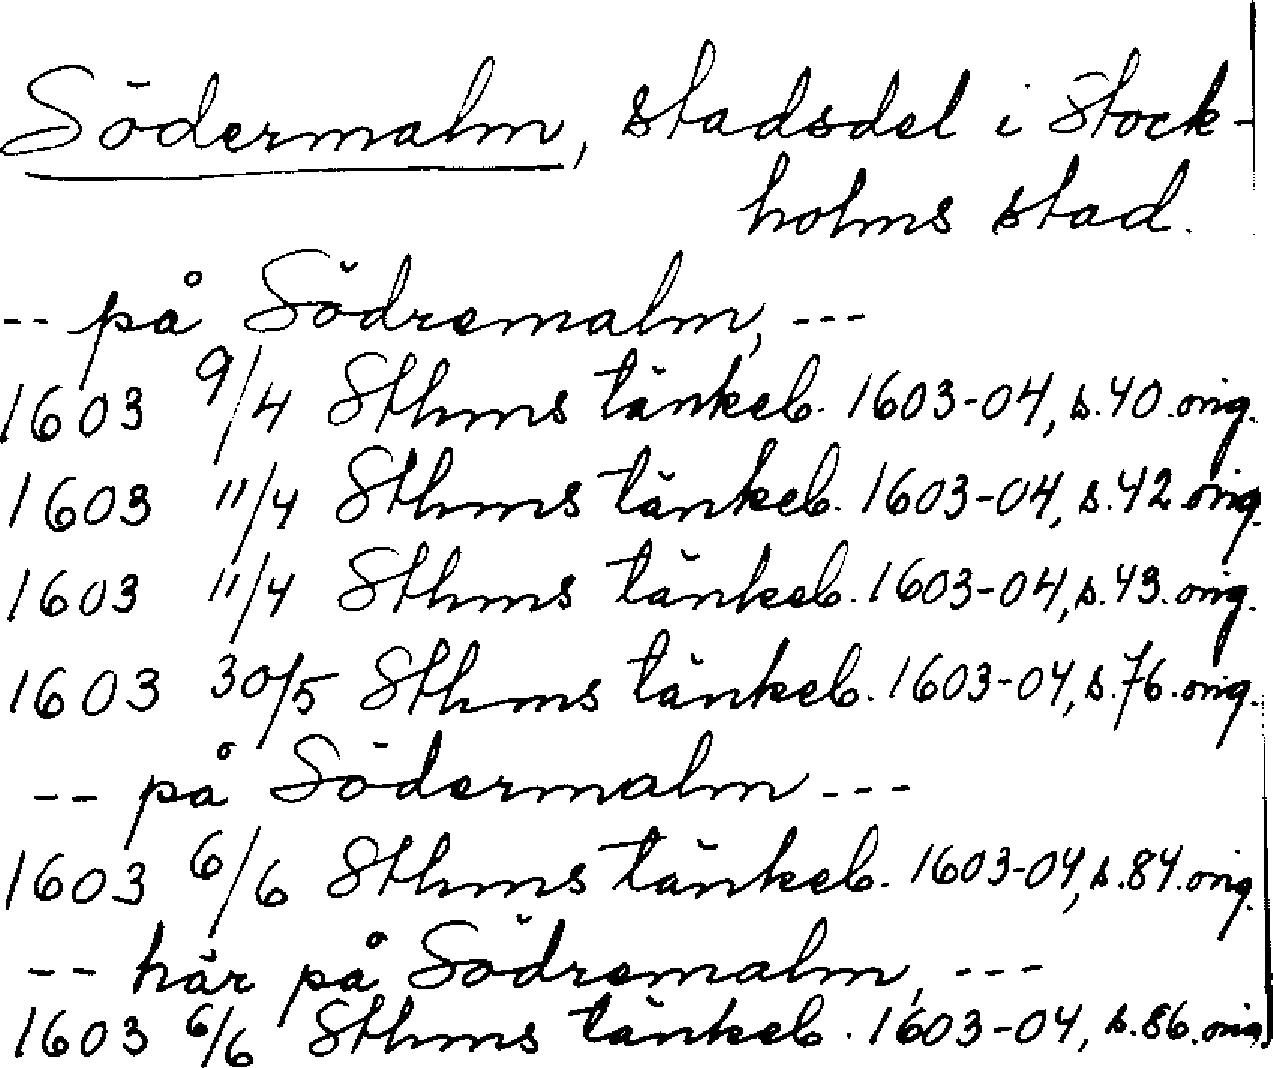 Södermalm, stadsdel i Stock-
holms stad.
-- på Södremalm, ---
1603 9/4 Sthms tänkeb. 1603-04, s.40.orig.
1603 11/4 Sthms tänkeb. 1603-04, s.42.orig.
1603 11/4 Sthms tänkeb. 1603-04, s.43.orig.
1603 30/5 Sthms tänkeb. 1603-04, s.76.orig.
-- på Södermalm ---
1603 6/6 Sthms tänkeb. 1603-04, s.84.orig.
-- här på Södremalm, ---
1603 6/6 Sthms tänkeb. 1603-04, s.86.orig.